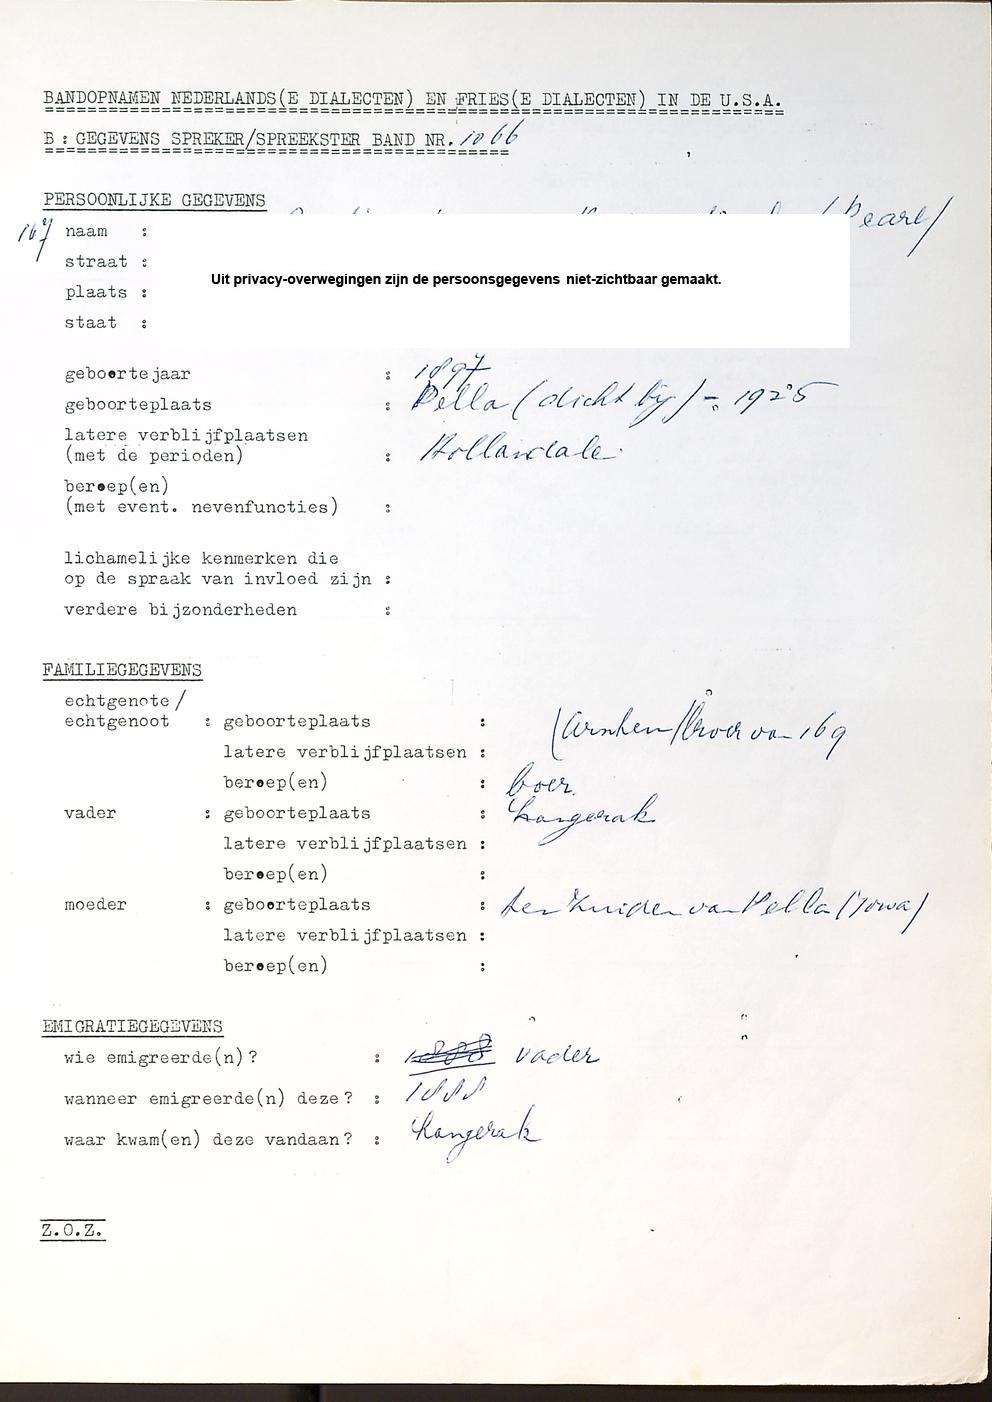 BANDOPNAMEN NEDERLANDS(E DIALECTEN) EN FRIES(E DIALECTEN) IN DE U.S.A.
B : GEGEVENS SPREKER/SPREEKSTER BAND NR. 1066
PERSOONLIJKE GEGEVENS
(Pearl)
167 naam :
straat :
Uit privacy-overwegingen zijn de persoonsgegevens niet-zichtbaar gemaakt.
plaats :
staat :
geboortejaar : 1897
geboorteplaats : Pella (dicht bij) - 1925
latere verblijfplaatsen
(met de perioden) : Hollandale
beroep(en)
(met event. nevenfuncties) :
lichamelijke kenmerken die
op de spraak van invloed zijn :
verdere bijzonderheden :
FAMILIEGEGEVENS
echtgenote/
echtgenoot : geboorteplaats : (Arnhem) broer van 169
latere verblijfplaatsen :
beroep(en) : boer
vader : geboorteplaats : Langerak
latere verblijfplaatsen :
beroep(en) :
moeder : geboorteplaats : ten Zuiden van Pella (Iowa)
latere verblijfplaatsen :
beroep(en) :
EMIGRATIEGEGEVENS
wie emigreerde(n)? : 1888 vader
wanneer emigreerde(n) deze? : 1888
waar kwam(en) deze vandaan? : Langerak
Z.O.Z.